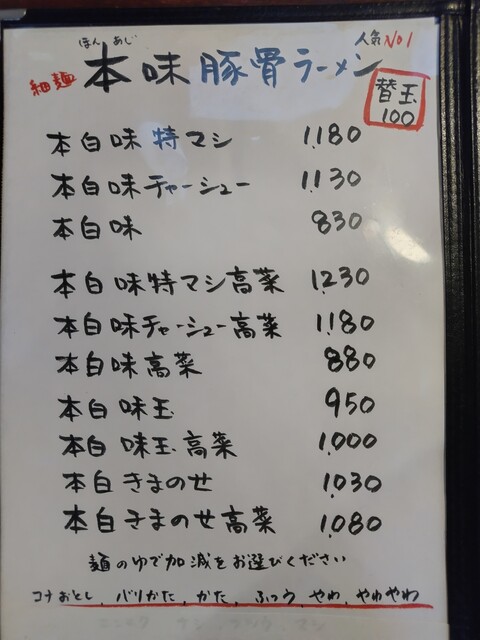 ほん あじ
人気 No1
細麺 本味豚骨ラーメン
替玉
100
本白味特マシ 1,180
本白味チャーシュー 1,130
本白味 830
本白味特マシ高菜 1,230
本白味チャーシュー高菜 1,180
本白味高菜 880
本白味玉 950
本白味玉高菜 1,000
本白きまのせ 1,030
本白きまのせ高菜 1,080
麺のゆで加減をお選びください
コナおとし、バリかた、かた、ふつう、やわ、やわやわ